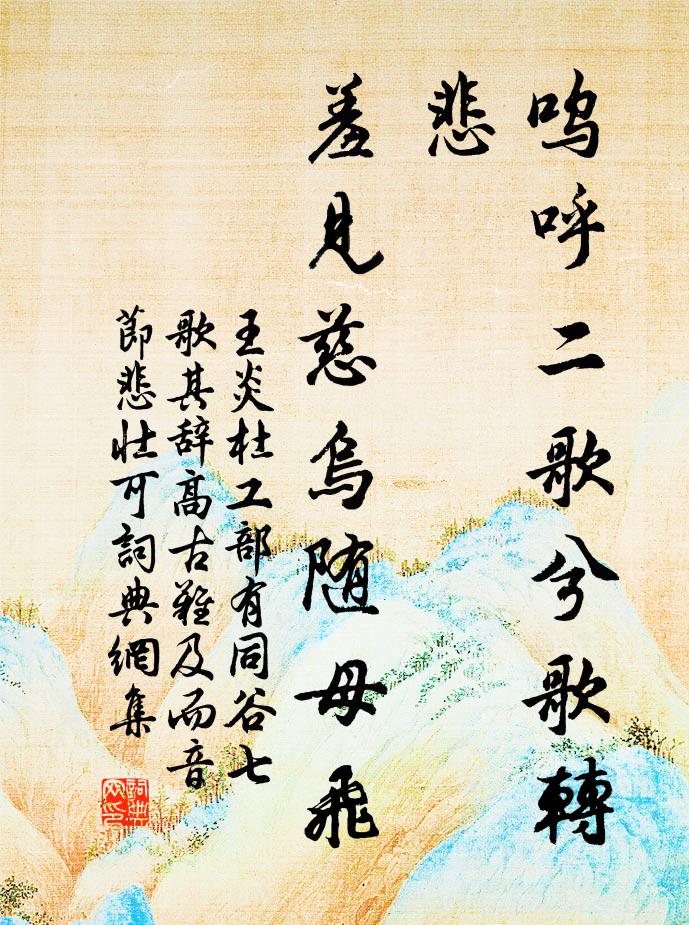 嗚呼二歌兮歌轉
悲
羞見慈烏随母飛
王炎杜工部有同谷七
歌其辞高古難及而音
節悲壮可詞典網集
詞典
网印